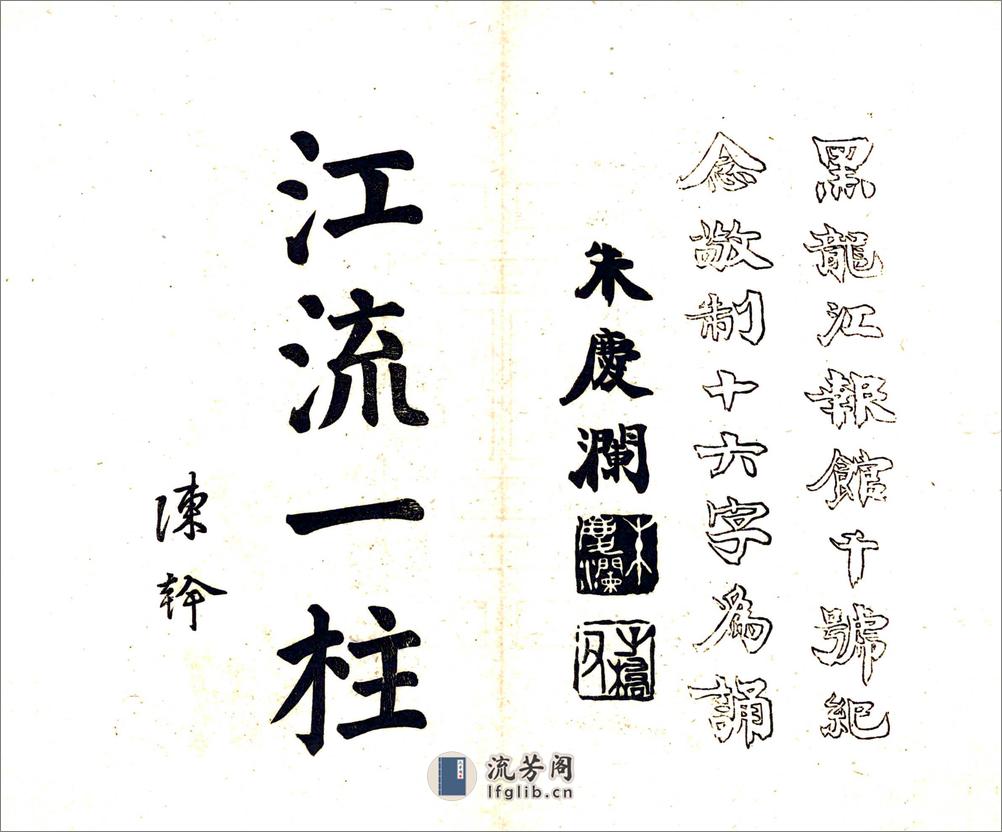 黑龍江報館千號紀
念敬制十六字為誦
朱慶瀾
朱慶瀾
子橋
江流一柱
陳幹
流芳阁
lfglib.cn